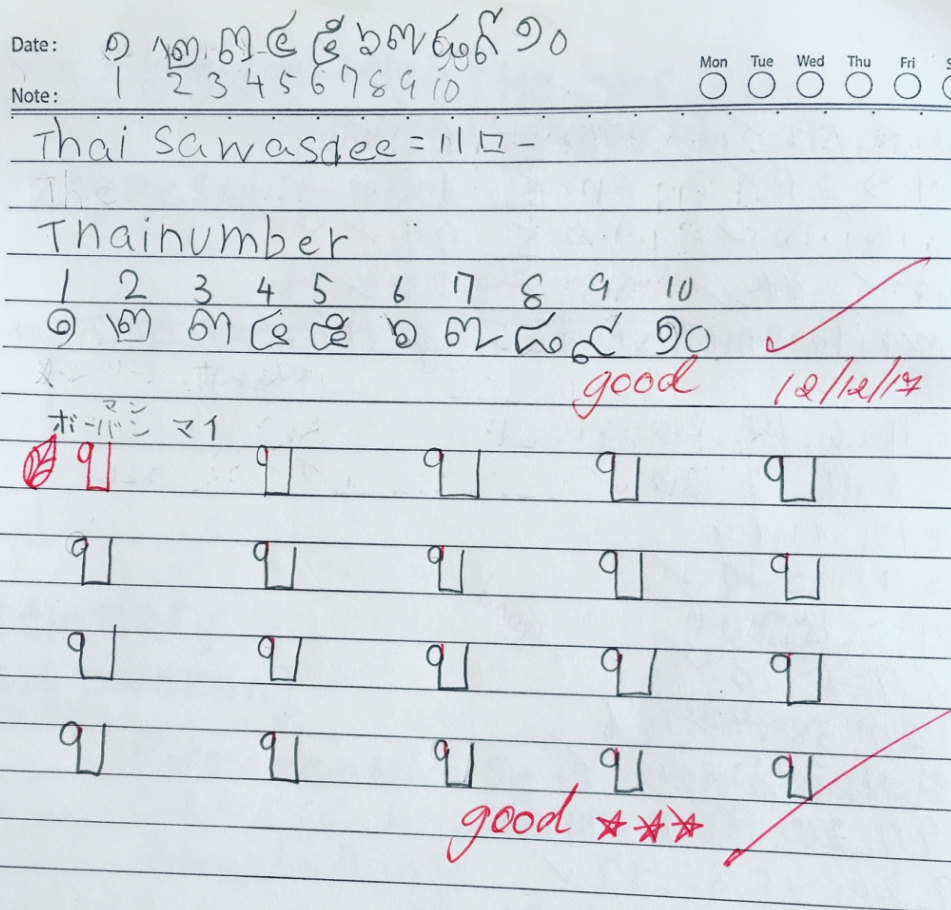 Date: ๑ ๒ ๓ ๔ ๕ ๖ ๗ ๘ ๙ ๑๐
1 2 3 4 5 6 7 8 9 10
Note:
Mon Tue Wed Thu Fri
Thai Sawasdee = ハロー
Thainumber
1 2 3 4 5 6 7 8 9 10
๑ ๒ ๓ ๔ ๕ ๖ ๗ ๘ ๙ ๑๐
good 12/12/17
マン
ボーバン マイ
บ บ บ บ บ
บ บ บ บ บ
บ บ บ บ บ
บ บ บ บ บ
good